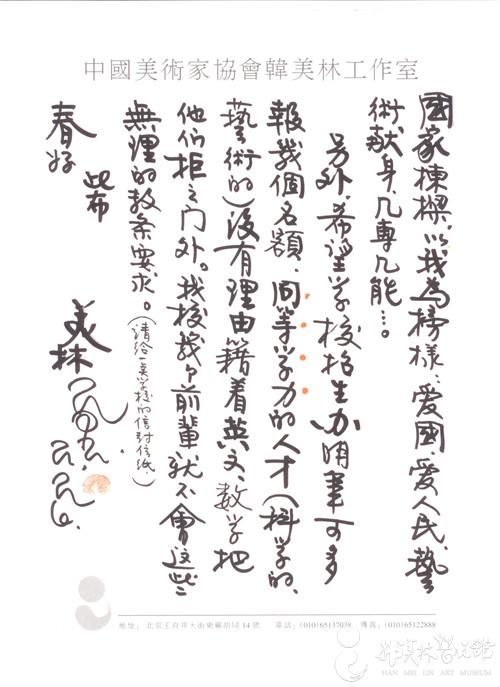 中國美術家協會韓美林工作室
國家棟樑，以我為榜樣：愛國愛人民、藝
術献身、几專几能…。
另外、希望学校招生办明年可多
報我個名額、同等学力的人才（科学的、
藝術的）没有理由籍着英文、数学把
他们拒之门外。找校我个前輩就不會這些
無理的教条要求。（請给一美学校的信封信紙）
此布
春好
美林
地址：北京王府井大街東廠胡同14號 電話：(010)65137038 傳真：(010)65122888
韩美林艺术馆
HAN MEI LIN ART MUSEUM